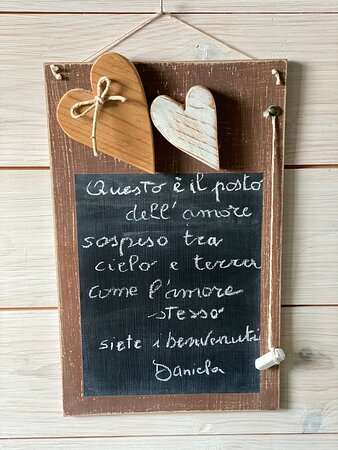 Questo è il posto
dell'amore
sospeso tra
cielo e terra
come l'amore
stesso
siete i benvenuti
Daniela